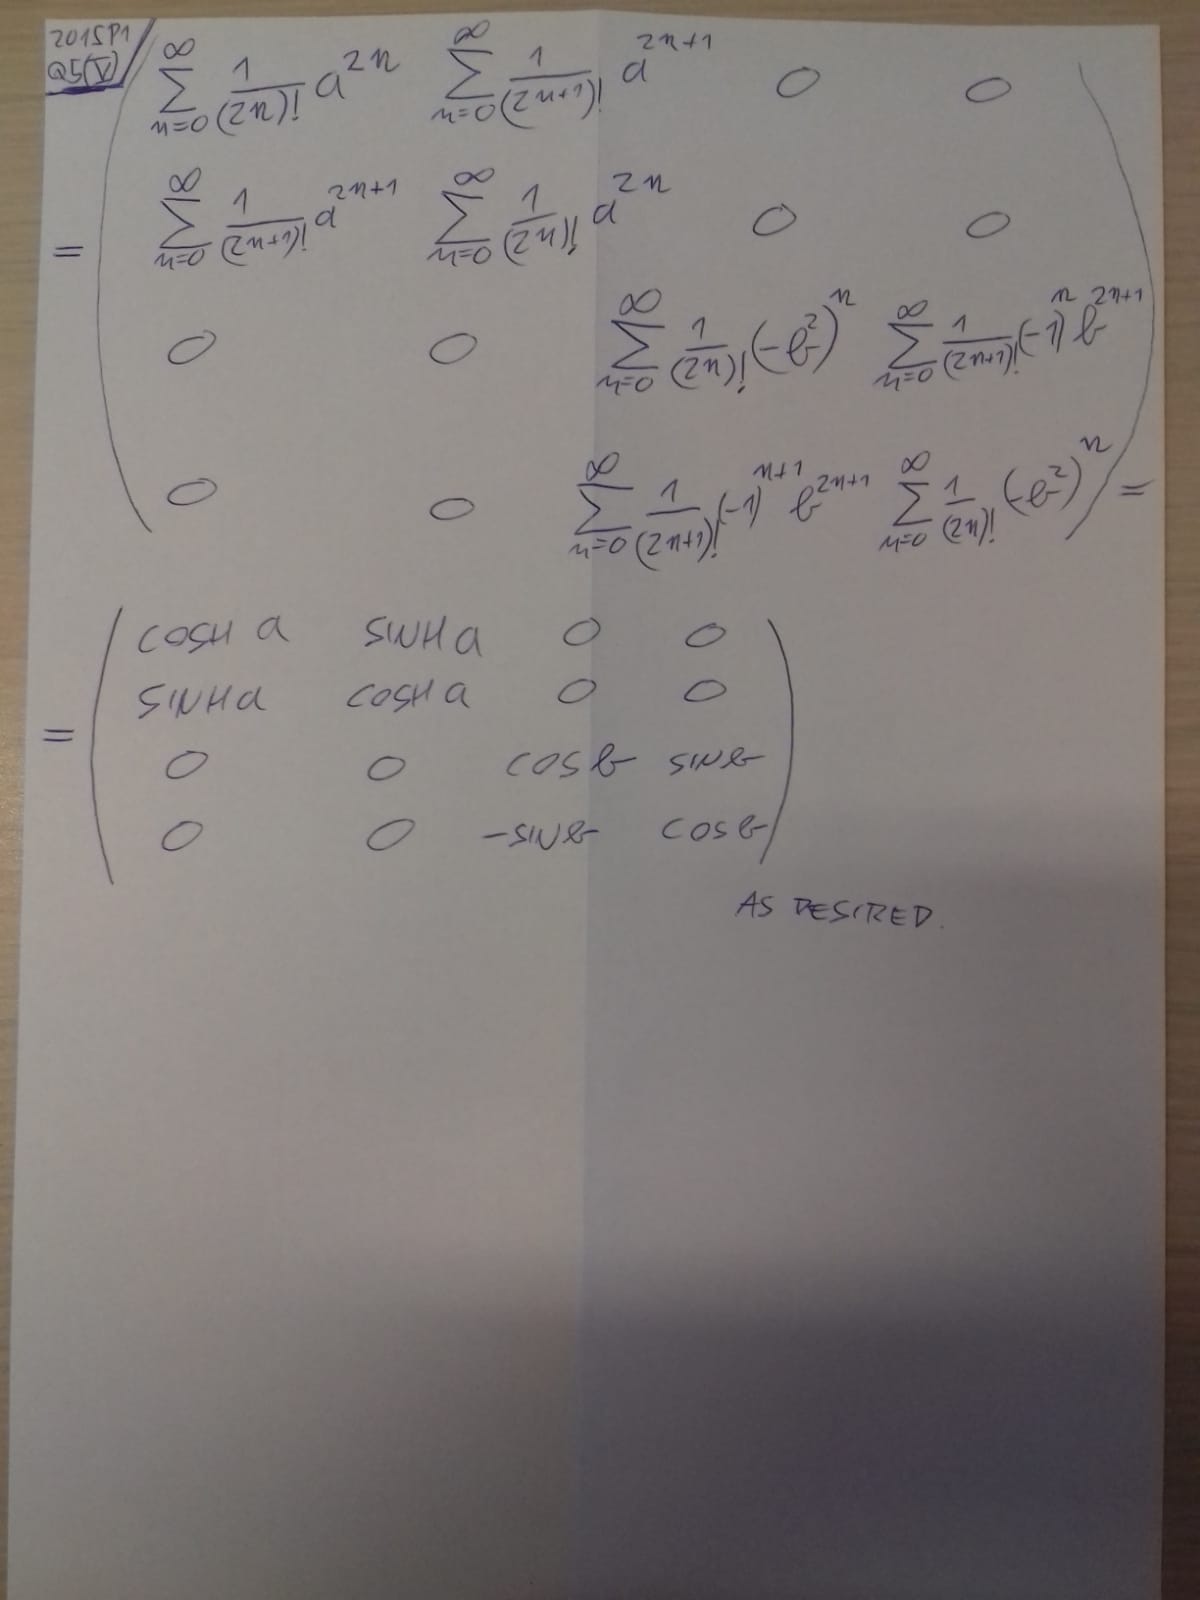 2015P1
Q5(V)
= ( ∑_{n=0}^{∞} 1/(2n)! a^{2n} ∑_{n=0}^{∞} 1/(2n+1)! a^{2n+1} 0 0
∑_{n=0}^{∞} 1/(2n+1)! a^{2n+1} ∑_{n=0}^{∞} 1/(2n)! a^{2n} 0 0
0 0 ∑_{n=0}^{∞} 1/(2n)! (-b²)^n ∑_{n=0}^{∞} 1/(2n+1)! (-1)^n b^{2n+1}
0 0 ∑_{n=0}^{∞} 1/(2n+1)! (-1)^{n+1} b^{2n+1} ∑_{n=0}^{∞} 1/(2n)! (-b²)^n ) =
= ( COSH a SINH a 0 0
SINH a COSH a 0 0
0 0 COS b SIN b
0 0 -SIN b COS b )
AS DESIRED.